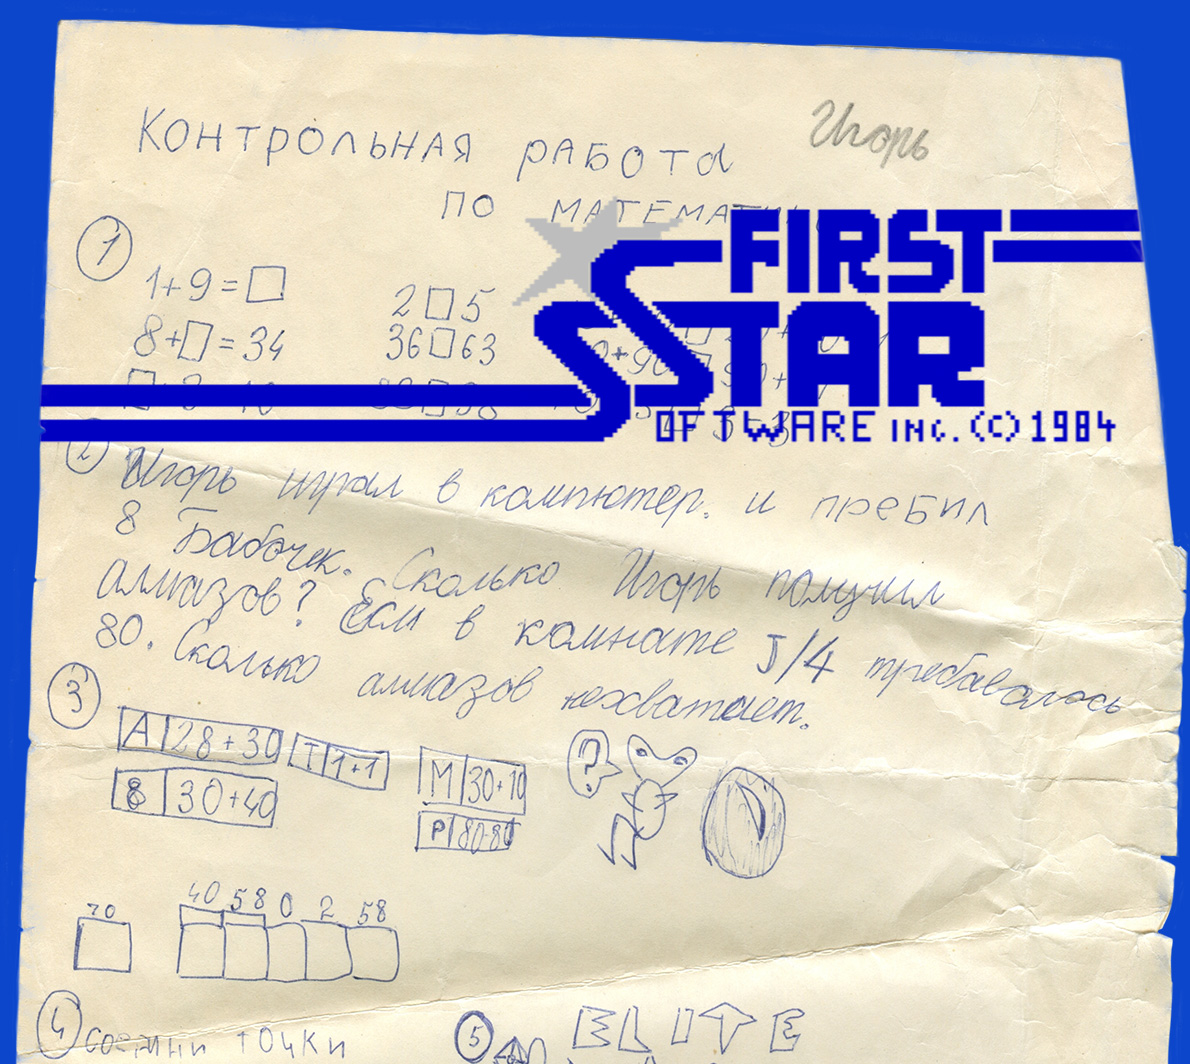 Контрольная работа
Игорь
по математи
FIRST
STAR
SOFTWARE INC. (C) 1984
1
1+9=□
2□5
8+□=34
36□63
2
Игорь играл в компютер. и пребил
8 Бабочек. Сколько Игорь получил
алмазов? Если в комнате J/4 требавалось
80. Сколько алмазов нехватает.
3
А 28+30
Т 1+1
М 30+10
8 30+40
Р 80-80
?
70
40 58 0 2 58
4
соедини точки
5
ELITE